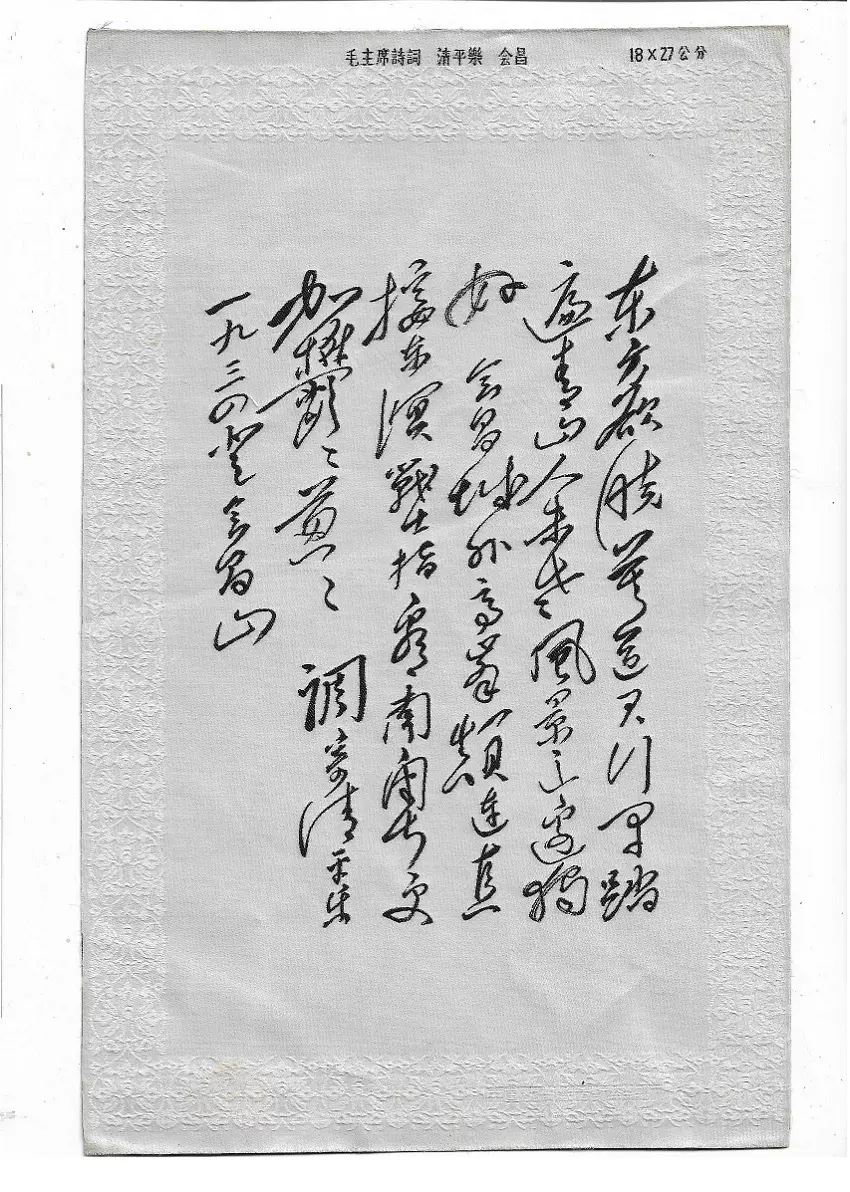 毛主席詩詞 清平樂 会昌 18×27公分
东方欲晓莫道君行早踏
遍青山人未老風景这边獨
好 会昌城外高峯顛连直
接东溟戰士指看南粤更
加鬱々葱々 調寄清平乐
一九三四登会昌山